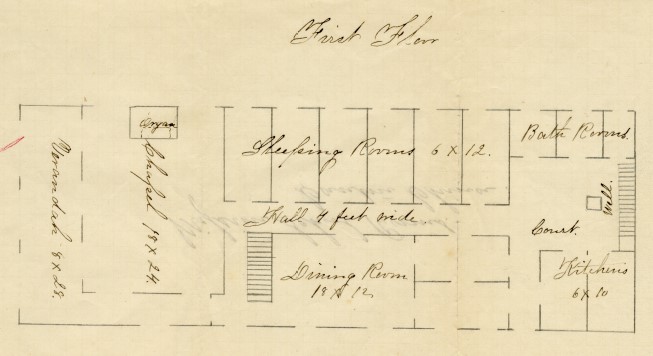 First Floor
Organ
Bath Rooms.
Sleeping Rooms 6 x 12.
Verandah 8 x 28.
Chapel 18 x 24.
Well.
Hall 4 feet wide.
Court.
Dining Room
18 x 12
Kitchens
6 x 10